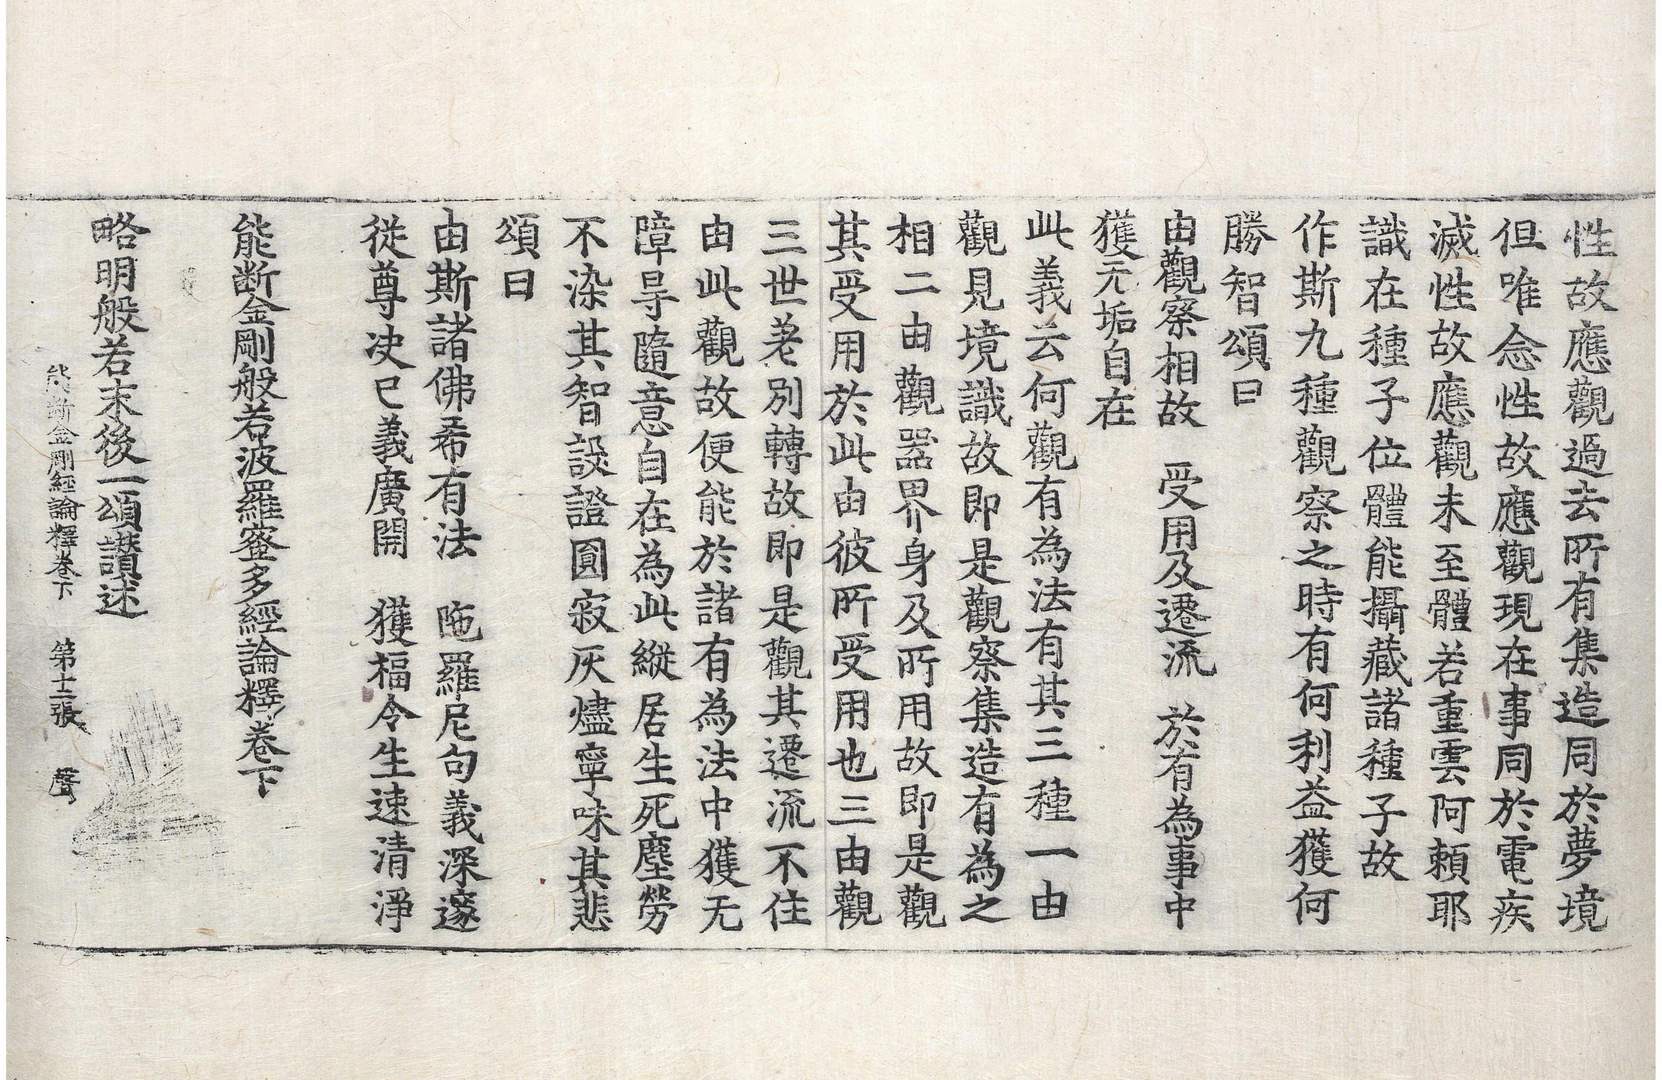 性故應觀過去所有集造同於夢境
但唯念性故應觀現在事同於電疾
滅性故應觀未至體若重雲阿賴耶
識在種子位體能攝藏諸種子故
作斯九種觀察之時有何利益獲何
勝智頌曰
由觀察相故　受用及遷流　於有為事中
獲无垢自在
此義云何觀有為法有其三種一由
觀見境識故即是觀察集造有為之
相二由觀器界身及所用故即是觀
其受用於此由彼所受用也三由觀
三世差別轉故即是觀其遷流不住
由此觀故便能於諸有為法中獲无
障㝵隨意自在為此縱居生死塵勞
不染其智設證圓寂灰燼寧味其悲
頌曰
由斯諸佛希有法　陁羅尼句義深邃
從尊决已義廣開　獲福令生速清淨
能断金剛般若波羅蜜多經論釋卷下
略明般若末後一頌讚述
能断金剛經論釋卷下　第十二張　聲